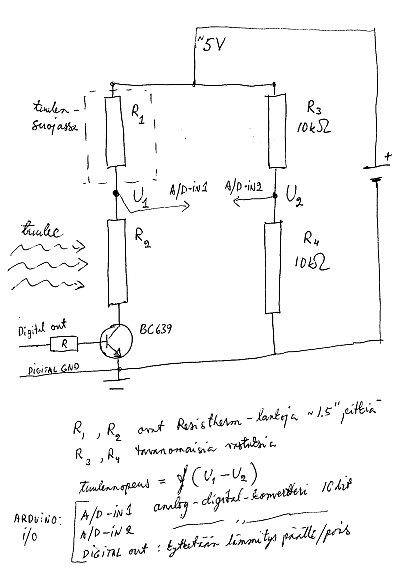 ~5V
tuulen-
suojassa
R1
R3
10kΩ
U1
A/D-in1
A/D-in2
U2
tuulee
R2
R4
10kΩ
Digital out
R
BC639
DIGITAL GND
R1, R2 ovat Resistherm-lankoja ~1.5" pitkiä
R3, R4 tavanomaisia vastuksia
tuulennopeus = f(U1-U2)
ARDUINO:
I/O
A/D-in1 analog-digital-konvertteri 10 bit
A/D-in2 " "
DIGITAL out: kytketään lämmitys päälle/pois